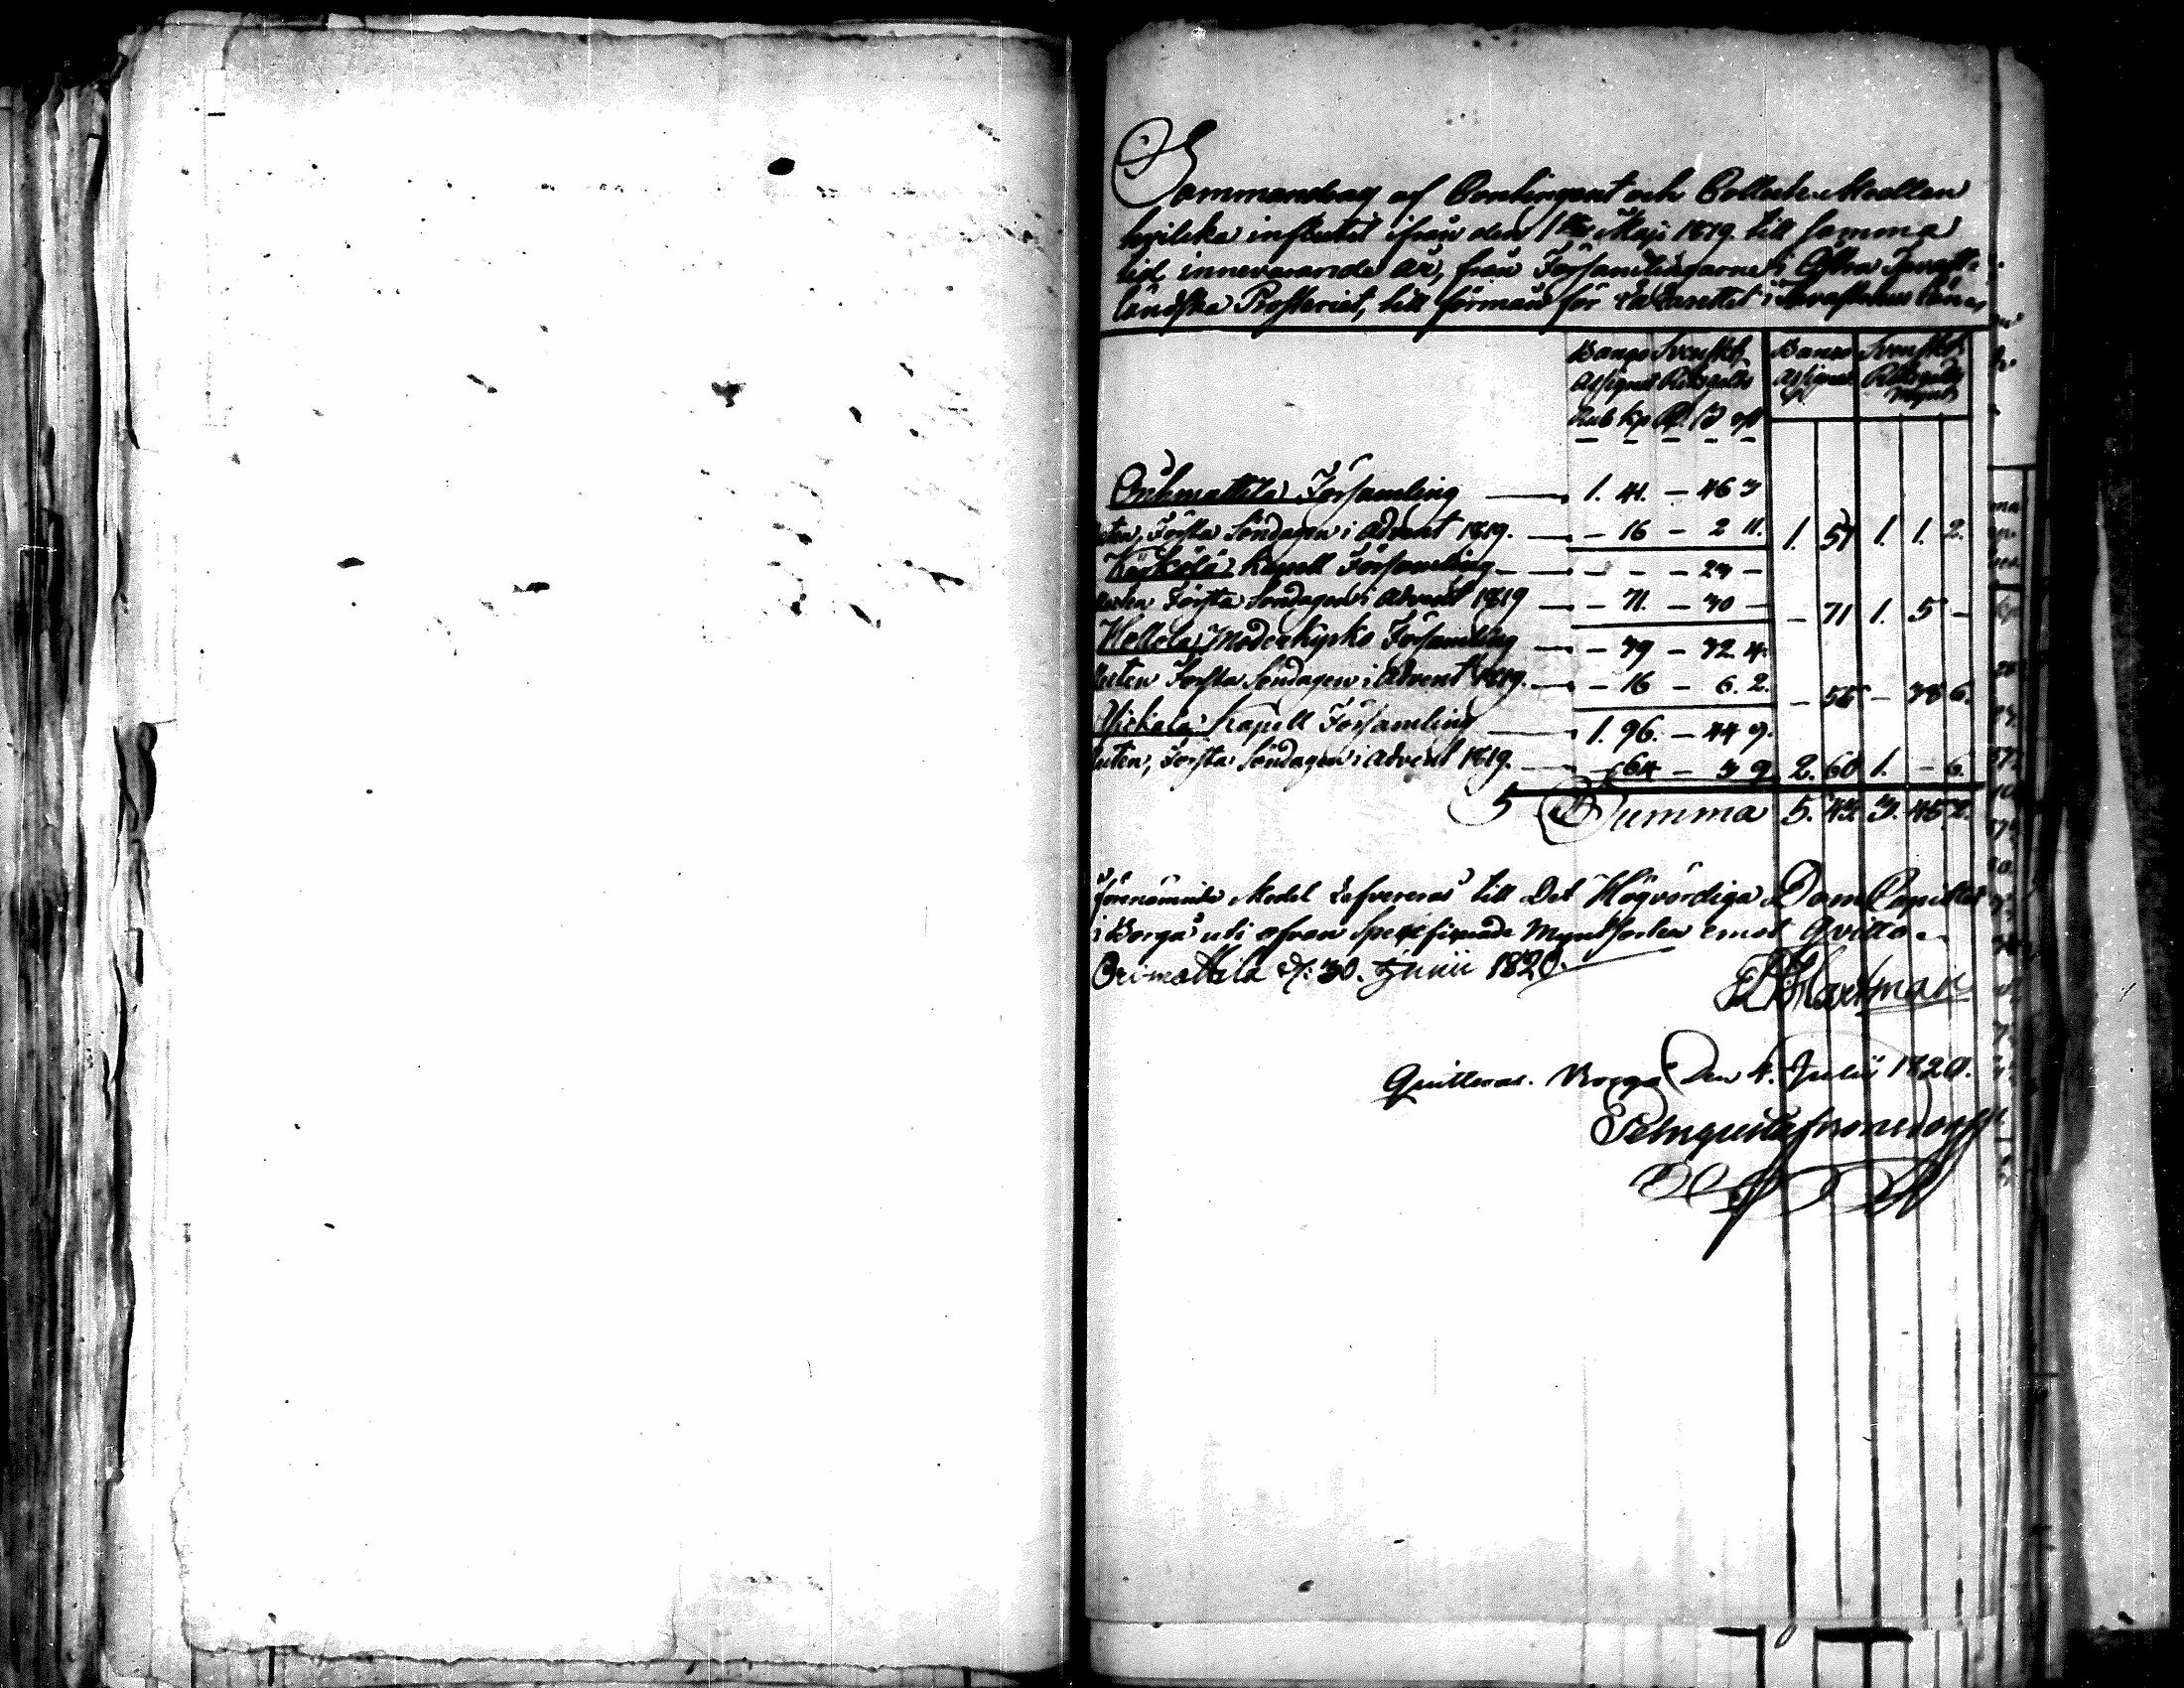 Sammandrag af Contingent och Collecte Medlen
hvilcka influtit ifrån den 1sta Maji 1819. till samma
tid innevarande År, från Församlingarne i Östra Tavast-
ländska Prosteriet, till förmån för Lazarettet i Tavastehus Län,
Banco Svenskt Banco Svenskt
Assignat Riksgälds Assignat Riksgälds
Mynt
Rub kp R. ß
Orimattila Församling — 1. 41. — 46 3
Första Söndagen i Advent 1819. — 16 — 2 11. 1. 57 1. 1. 2.
Kärkölä Kapell Församling — — — 23 —
Första Söndagen i Advent 1819 — 71. — 30 — — 71 1. 5 —
Hollola Moderkyrko Församling — 39 — 32. 4.
Första Söndagen i Advent 1819. — 16 — 6. 2. — 55 — 38 6.
Kapell Församling — 1. 96. — 44 9.
Första Söndagen i Advent 1819. — 64 — 3 9 2. 60 1. — 6.
Summa 5. 43. 3. 45 2.
Förenämnde Medel Lefvereras till Det Högvördiga Dom Capitlet
i Borgå uti ofvan Specificerade Myntsorter emot Qvitto.
Orimattila d. 30. Junii 1820.
Hartman
Quitteras. Borgå Den 4. Julii 1820.